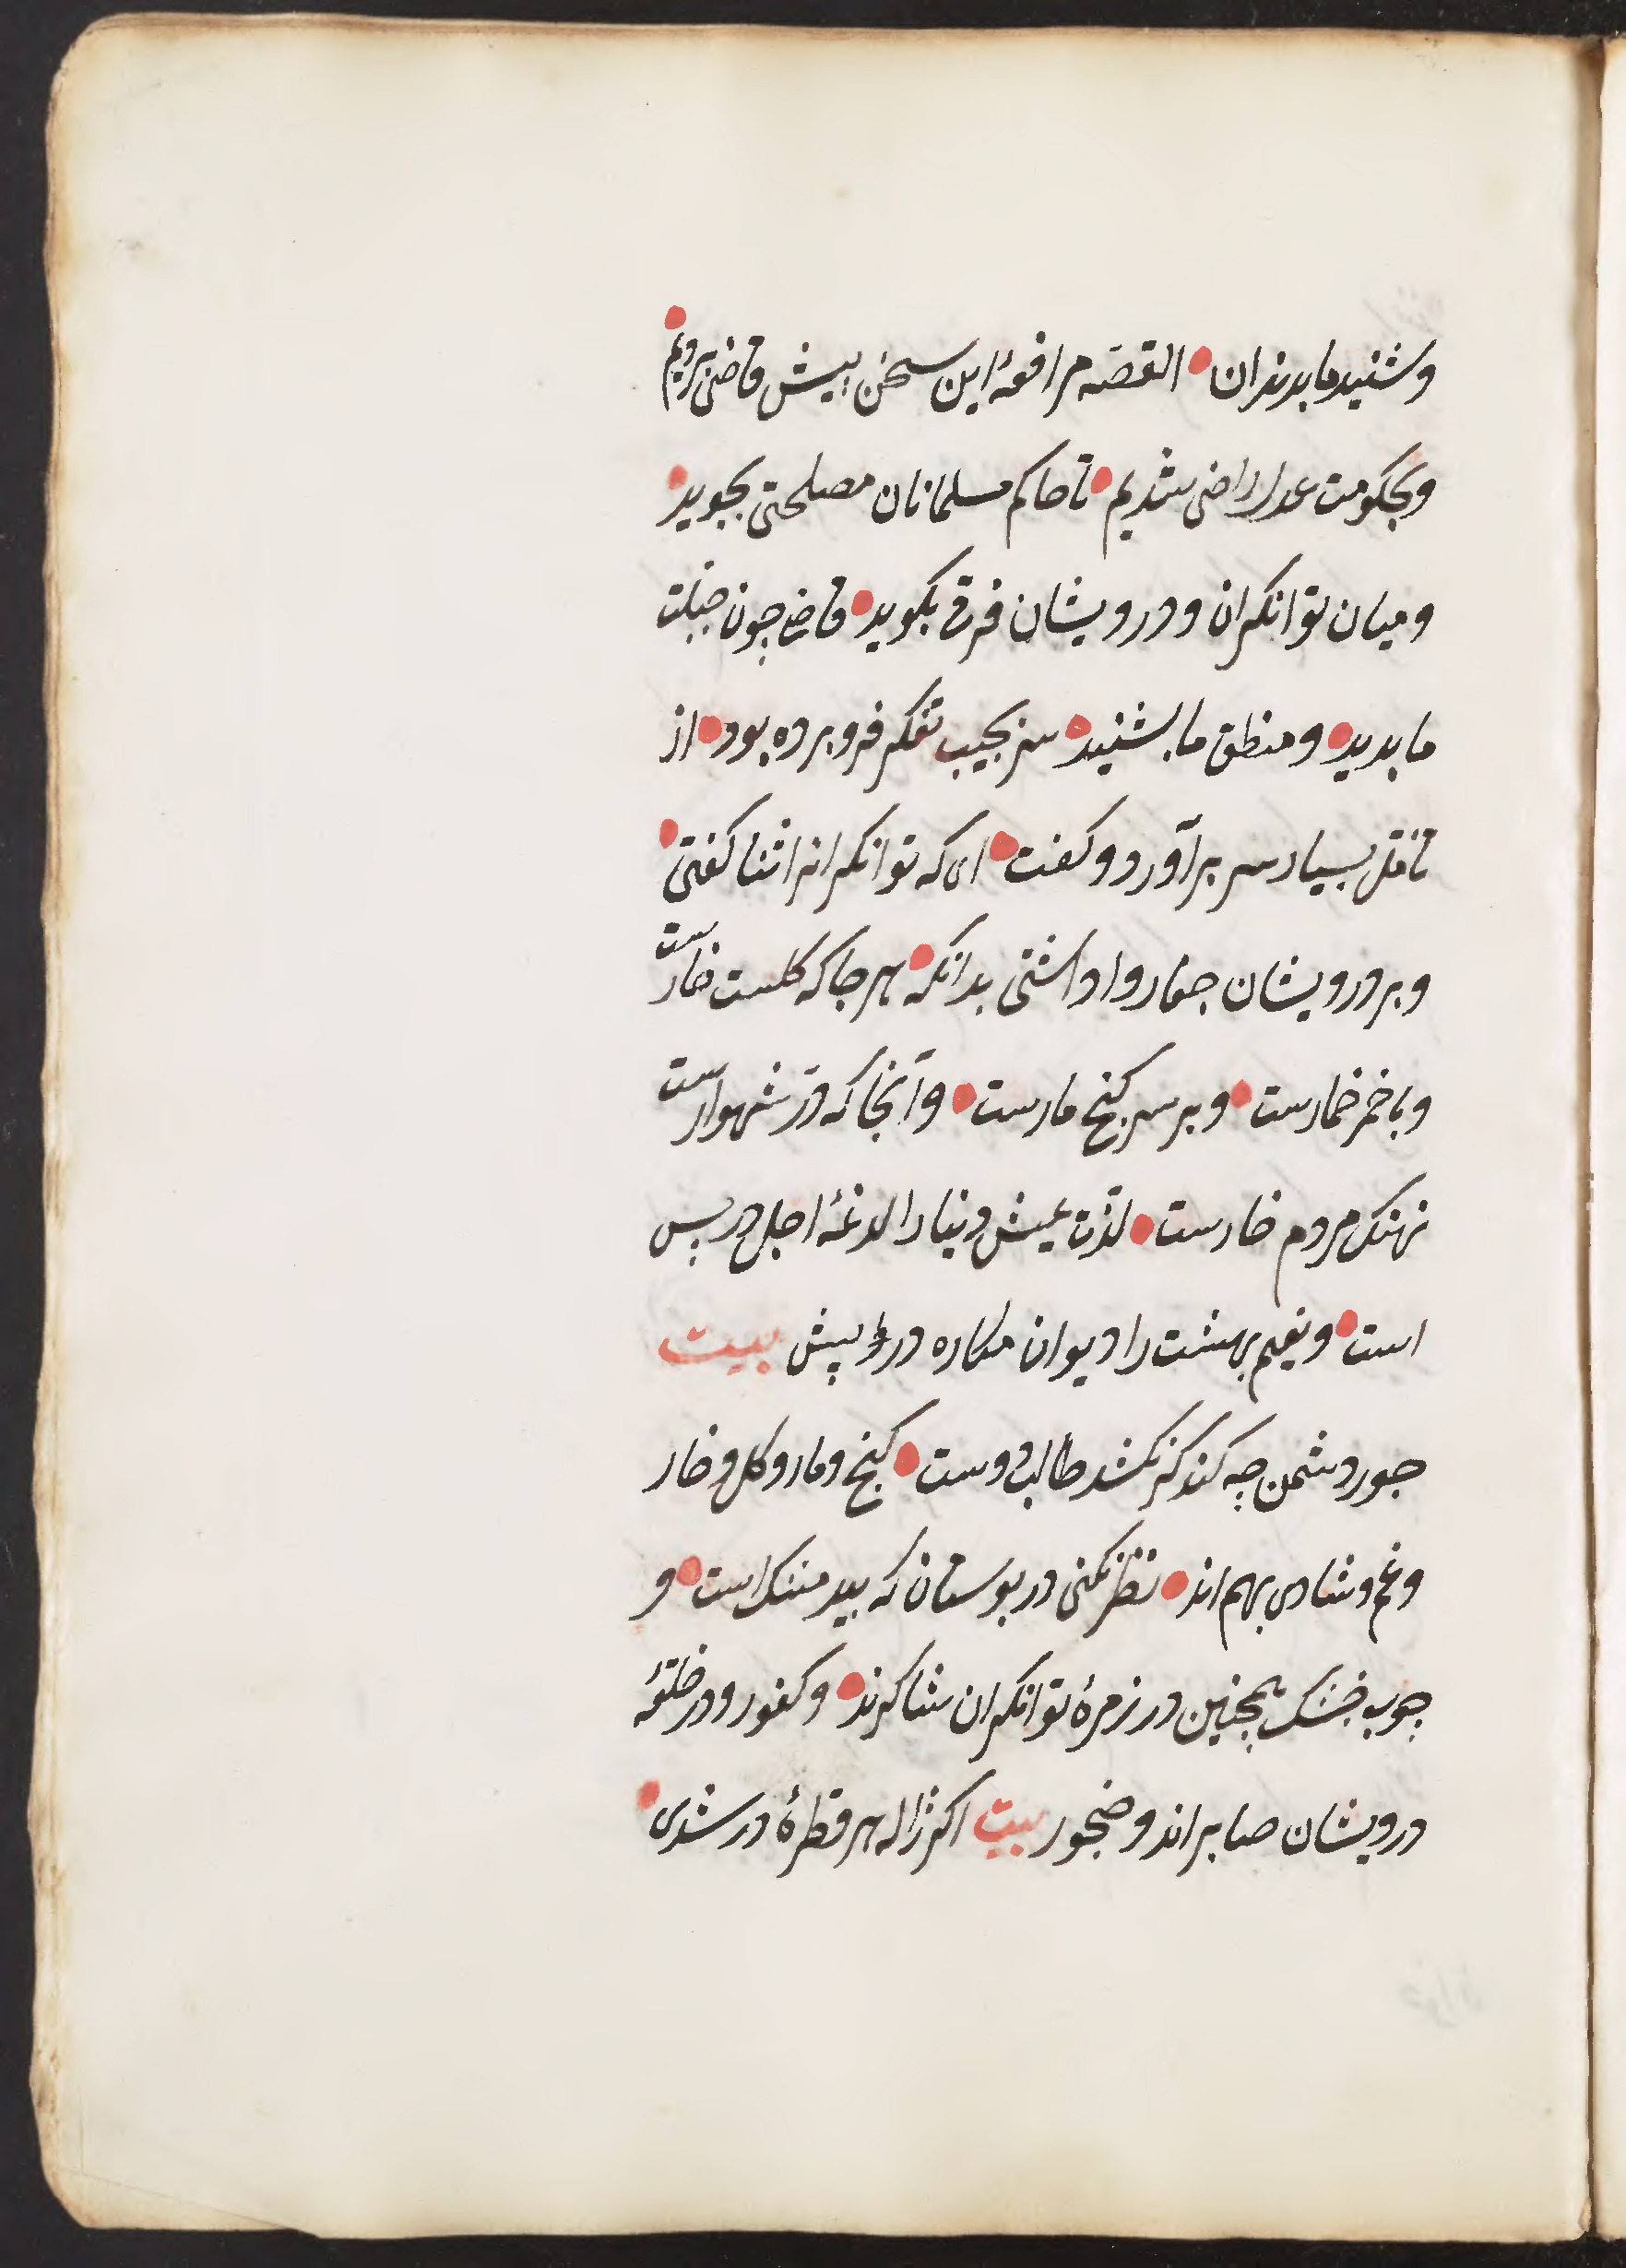 وشنیدما بدندان القصّه مرافعهٔ این سخن پیش قاضی بردیم
وبحکومت عدل راضی شدیم تا حاکم مسلمانان مصلحتی بجوید
ومیان توانکران ودرویشان فرقی بکوید قاضی چون حیلت
ما بدید ومنطق ما بشنید سر بجیب تفکر فرو برده بود از
تأمّل بسیار سر برآورد وکفت ای که توانکرانرا ثنا کفتی
وبر درویشان جفا روا داشتی بدانکه هر جا که کلست خارست
وبا خمر خمارست وبر سر کنج مارست وآنجا که درّ شهوارست
نهنک مردم خارست لذّت عیش دنیا را لدغهٔ اجل در پس
است ونعیم بهشت را دیوان مکاره در پیش بیت
جور دشمن چه کند کر نکشد طالب دوست کنج ومار وکل وخار
وغم وشادی بهم اند نظر نکنی در بوستان که بید مشک است و
چوب خشک همچنین در زمرهٔ توانکران شاکرند وکفور ودر حلقهٔ
درویشان صابراند وضجور بیت اکر ژاله هر قطرهٔ در شدی